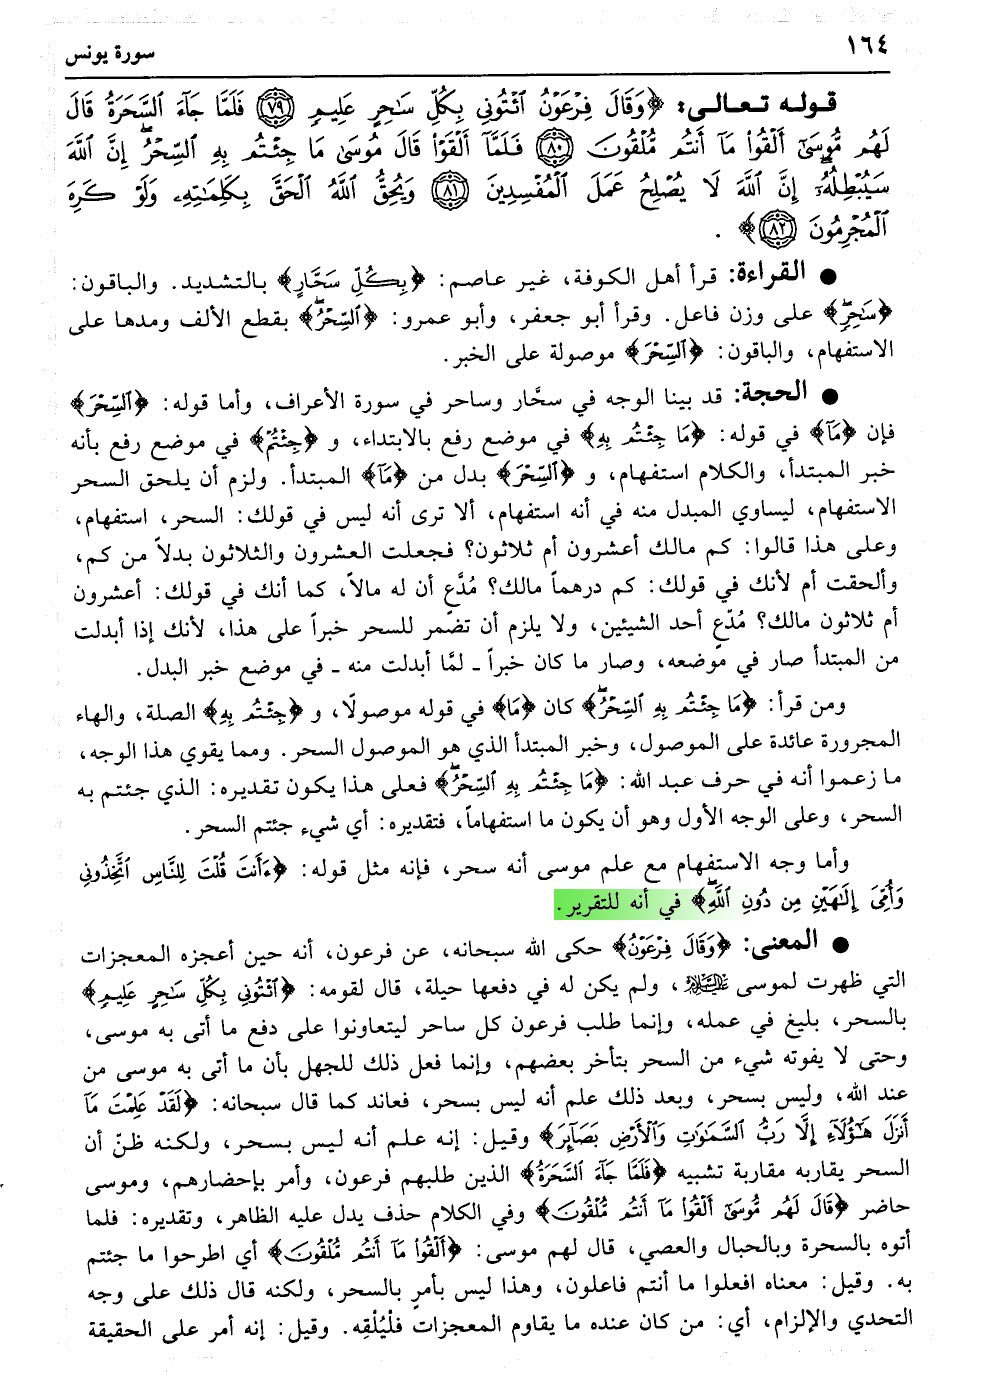 ١٦٤
سورة يونس
قوله تعالى: ﴿وَقَالَ فِرْعَوْنُ ٱئْتُونِي بِكُلِّ سَٰحِرٍ عَلِيمٍ ﴿٧٩﴾ فَلَمَّا جَآءَ ٱلسَّحَرَةُ قَالَ
لَهُم مُّوسَىٰٓ أَلْقُوا۟ مَآ أَنتُم مُّلْقُونَ ﴿٨٠﴾ فَلَمَّآ أَلْقَوْا۟ قَالَ مُوسَىٰ مَا جِئْتُم بِهِ ٱلسِّحْرُ ۖ إِنَّ ٱللَّهَ
سَيُبْطِلُهُۥٓ ۖ إِنَّ ٱللَّهَ لَا يُصْلِحُ عَمَلَ ٱلْمُفْسِدِينَ ﴿٨١﴾ وَيُحِقُّ ٱللَّهُ ٱلْحَقَّ بِكَلِمَٰتِهِۦ وَلَوْ كَرِهَ
ٱلْمُجْرِمُونَ ﴿٨٢﴾﴾ .
● القراءة: قرأ أهل الكوفة، غير عاصم: ﴿بِكُلِّ سَحَّارٍ﴾ بالتشديد. والباقون:
﴿سَٰحِرٍ ۖ﴾ على وزن فاعل. وقرأ أبو جعفر، وأبو عمرو: ﴿ٱلسِّحْرُ ۖ﴾ بقطع الألف ومدها على
الاستفهام، والباقون: ﴿ٱلسِّحْرَ﴾ موصولة على الخبر.
● الحجة: قد بينا الوجه في سحَّار وساحر في سورة الأعراف، وأما قوله: ﴿ٱلسِّحْرَ﴾
فإن ﴿مَآ﴾ في قوله: ﴿مَا جِئْتُم بِهِ﴾ في موضع رفع بالابتداء، و ﴿جِئْتُمْ﴾ في موضع رفع بأنه
خبر المبتدأ، والكلام استفهام، و ﴿ٱلسِّحْرَ﴾ بدل من ﴿مَآ﴾ المبتدأ. ولزم أن يلحق السحر
الاستفهام، ليساوي المبدل منه في أنه استفهام، ألا ترى أنه ليس في قولك: السحر، استفهام،
وعلى هذا قالوا: كم مالك أعشرون أم ثلاثون؟ فجعلت العشرون والثلاثون بدلاً من كم،
وألحقت أم لأنك في قولك: كم درهماً مالك؟ مُدَّعٍ أن له مالاً، كما أنك في قولك: أعشرون
أم ثلاثون مالك؟ مُدّعٍ أحد الشيئين، ولا يلزم أن تضمر للسحر خبراً على هذا، لأنك إذا أبدلت
من المبتدأ صار في موضعه، وصار ما كان خبراً ـ لمَّا أبدلت منه ـ في موضع خبر البدل.
ومن قرأ: ﴿مَا جِئْتُم بِهِ ٱلسِّحْرُ ۖ﴾ كان ﴿مَا﴾ في قوله موصولًا، و ﴿جِئْتُم بِهِ﴾ الصلة، والهاء
المجرورة عائدة على الموصول، وخبر المبتدأ الذي هو الموصول السحر. ومما يقوي هذا الوجه،
ما زعموا أنه في حرف عبد الله: ﴿مَا جِئْتُم بِهِ ٱلسِّحْرُ ۖ﴾ فعلى هذا يكون تقديره: الذي جئتم به
السحر، وعلى الوجه الأول وهو أن يكون ما استفهاماً، فتقديره: أي شيء جئتم السحر.
وأما وجه الاستفهام مع علم موسى أنه سحر، فإنه مثل قوله: ﴿ءَأَنتَ قُلْتَ لِلنَّاسِ ٱتَّخِذُونِي
وَأُمِّيَ إِلَٰهَيْنِ مِن دُونِ ٱللَّهِ ۖ﴾ في أنه للتقرير.
● المعنى: ﴿وَقَالَ فِرْعَوْنُ﴾ حكى الله سبحانه، عن فرعون، أنه حين أعجزه المعجزات
التي ظهرت لموسى عليه السلام، ولم يكن له في دفعها حيلة، قال لقومه: ﴿ٱئْتُونِي بِكُلِّ سَٰحِرٍ عَلِيمٍ﴾
بالسحر، بليغ في عمله، وإنما طلب فرعون كل ساحر ليتعاونوا على دفع ما أتى به موسى،
وحتى لا يفوته شيء من السحر بتأخر بعضهم، وإنما فعل ذلك للجهل بأن ما أتى به موسى من
عند الله، وليس بسحر، وبعد ذلك علم أنه ليس بسحر، فعاند كما قال سبحانه: ﴿لَقَدْ عَلِمْتَ مَآ
أَنزَلَ هَٰٓؤُلَآءِ إِلَّا رَبُّ ٱلسَّمَٰوَٰتِ وَٱلْأَرْضِ بَصَآئِرَ﴾ وقيل: إنه علم أنه ليس بسحر، ولكنه ظنّ أن
السحر يقاربه مقاربة تشبيه ﴿فَلَمَّا جَآءَ ٱلسَّحَرَةُ﴾ الذين طلبهم فرعون، وأمر بإحضارهم، وموسى
حاضر ﴿قَالَ لَهُم مُّوسَىٰٓ أَلْقُوا۟ مَآ أَنتُم مُّلْقُونَ﴾ وفي الكلام حذف يدل عليه الظاهر، وتقديره: فلما
أتوه بالسحرة وبالحبال والعصي، قال لهم موسى: ﴿أَلْقُوا۟ مَآ أَنتُم مُّلْقُونَ﴾ أي اطرحوا ما جئتم
به. وقيل: معناه افعلوا ما أنتم فاعلون، وهذا ليس بأمرٍ بالسحر، ولكنه قال ذلك على وجه
التحدي والإلزام، أي: من كان عنده ما يقاوم المعجزات فلْيُلْقِه. وقيل: إنه أمر على الحقيقة